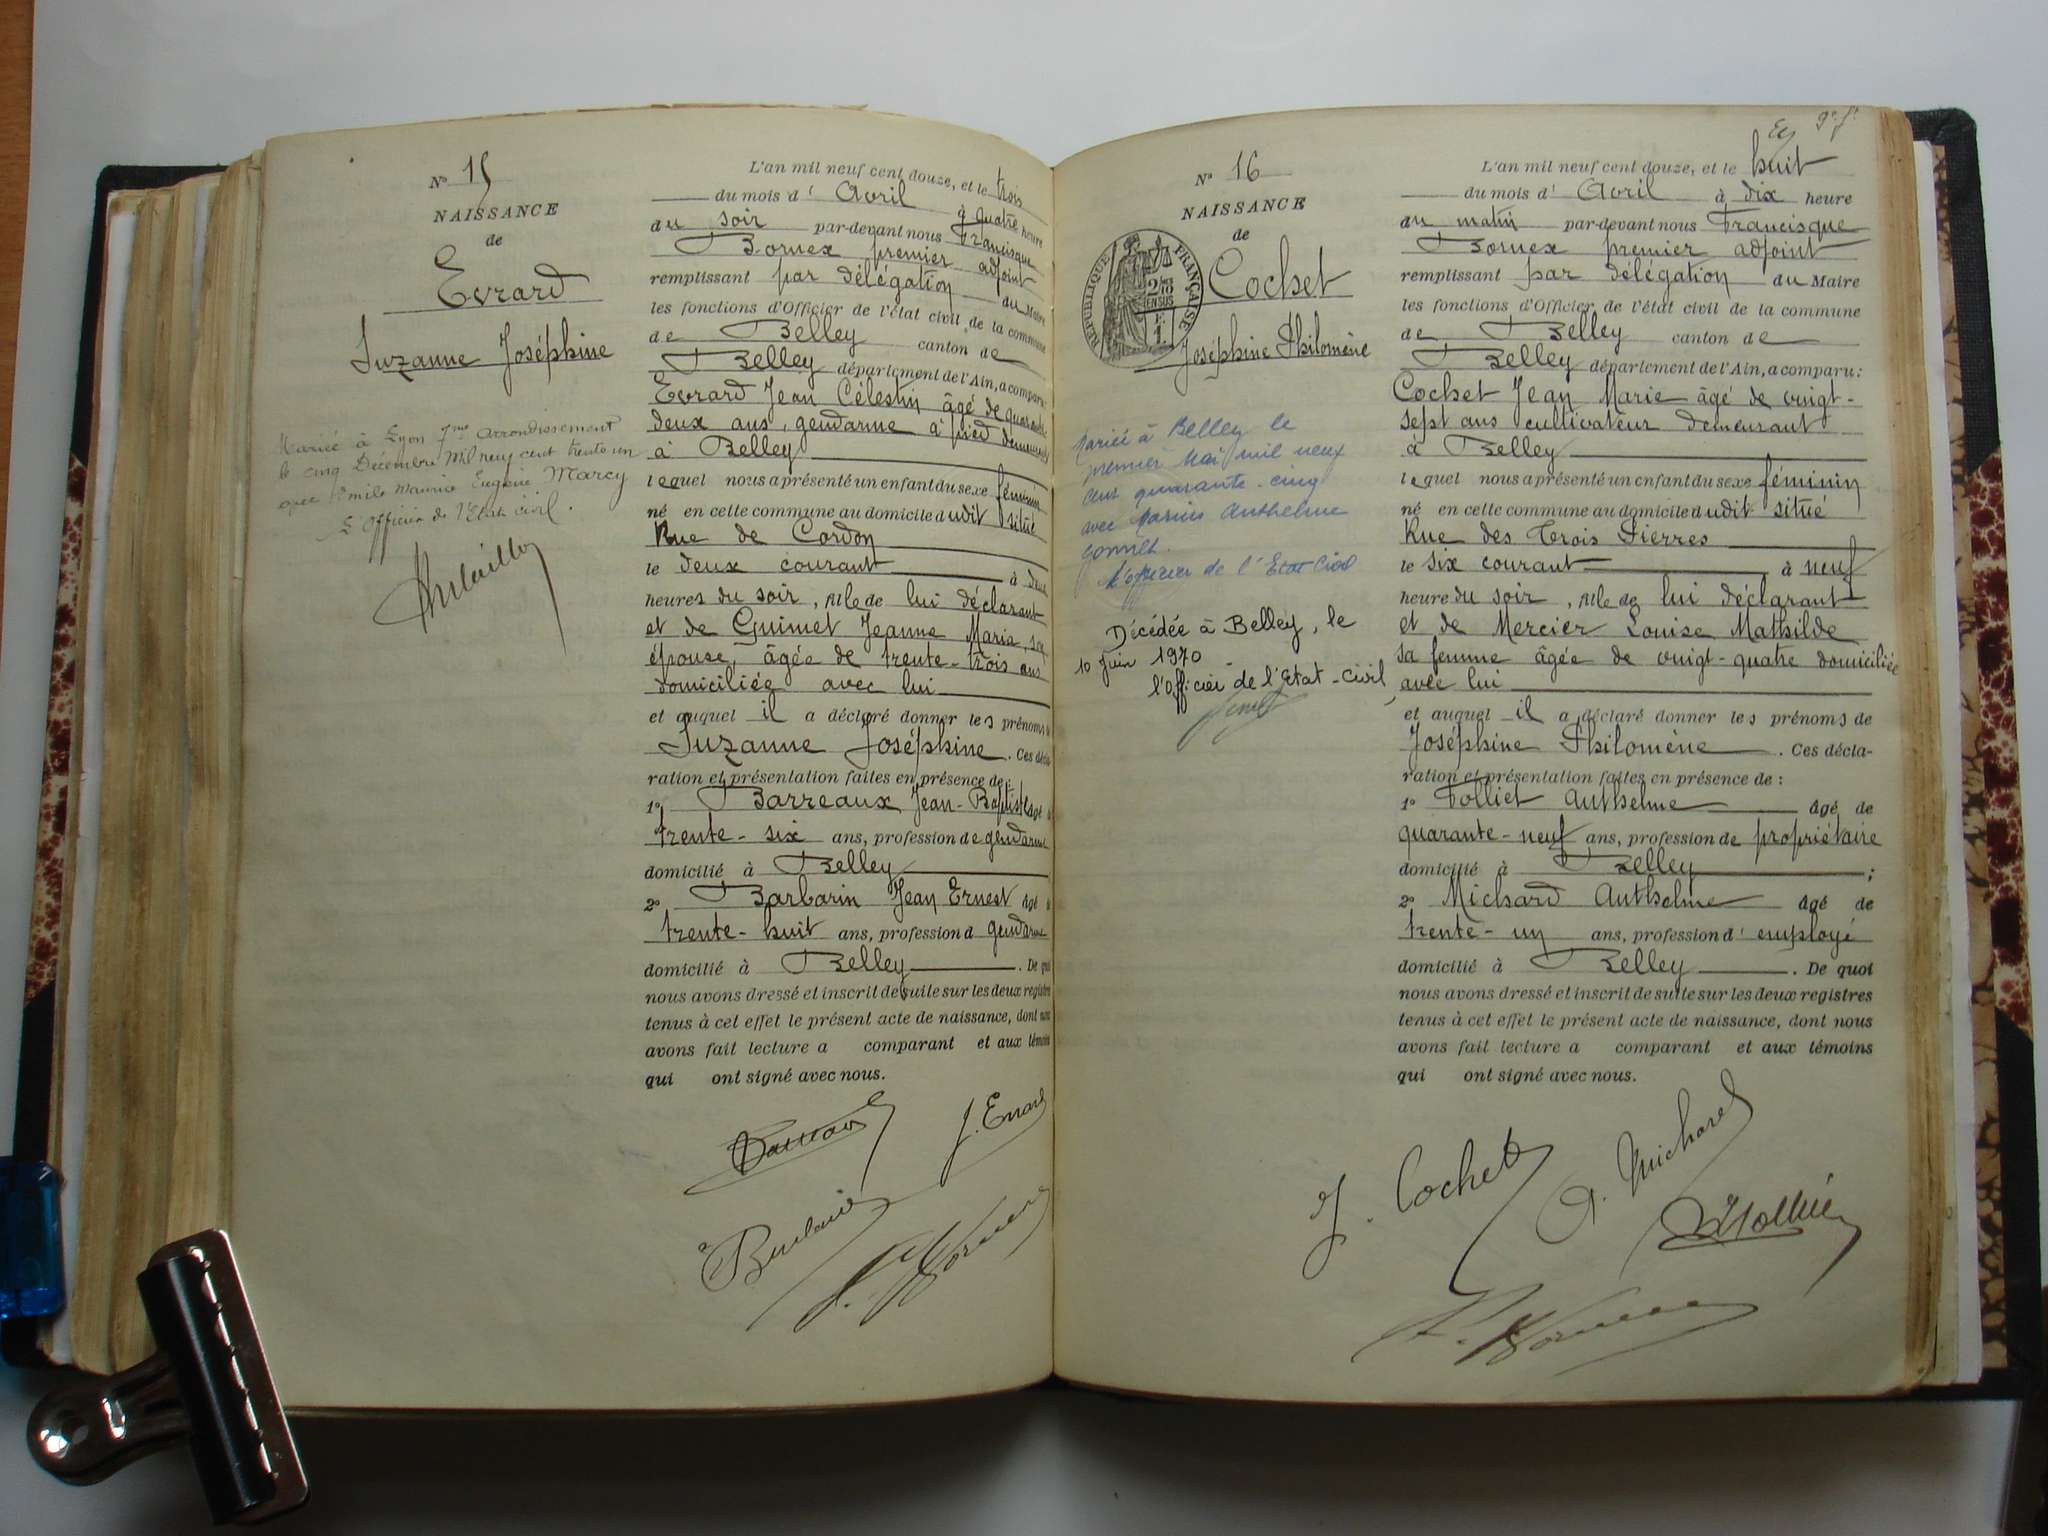 N° 15
NAISSANCE
de
Evrard
Suzanne Joséphine
Mariée à Lyon 7me arrondissement
le cinq Décembre mil neuf cent trente un
avec Emile Maurice Eugène MARCY
L'Officier de l'Etat civil.
L'an mil neuf cent douze, et le trois
du mois d' Avril à quatre heure
du soir par-devant nous Francisque
Bornex premier adjoint
remplissant par délégation du Maire
les fonctions d'Officier de l'état civil de la commune
de Belley canton de
Belley département de l'Ain, a comparu:
Evrard Jean Célestin âgé de quarante
deux ans, gendarme à pied demeurant
à Belley
lequel nous a présenté un enfant du sexe féminin
né en cette commune au domicile dudit situé
Rue de Cordon
le deux courant à deux
heures du soir, fille de lui déclarant
et de Guimet Jeanne Maria, sa
épouse, âgée de trente-trois ans
domiciliée avec lui
et auquel il a déclaré donner les prénoms de
Suzanne Joséphine. Ces décla
ration et présentation faites en présence de:
1° Barreaux Jean-Baptiste âgé d
trente-six ans, profession de gendarme
domicilié à Belley
2° Barbarin Jean Ernest âgé d
trente-huit ans, profession d gendarme
domicilié à Belley. De qui
nous avons dressé et inscrit de suite sur les deux registres
tenus à cet effet le présent acte de naissance, dont nous
avons fait lecture a comparant et aux témoins
qui ont signé avec nous.
J. Evrard
N° 16
NAISSANCE
de
RÉPUBLIQUE FRANÇAISE
Cochet
Joséphine Philomène
Mariée à Belley le
premier Mai mil neuf
cent quarante-cinq
avec Marius Anthelme
L'officier de l'Etat Civil
Décédée à Belley, le
10 Juin 1970
l'Officier de l'Etat-Civil
L'an mil neuf cent douze, et le huit
du mois d' Avril à dix heure
du matin par-devant nous Francisque
Bornex premier adjoint
remplissant par délégation du Maire
les fonctions d'Officier de l'état civil de la commune
de Belley canton de
Belley département de l'Ain, a comparu:
Cochet Jean Marie âgé de vingt-
sept ans cultivateur demeurant
à Belley
lequel nous a présenté un enfant du sexe féminin
né en cette commune au domicile dudit situé
Rue des Trois Pierres
le six courant à neuf
heure du soir, fille de lui déclarant
et de Mercier Louise Mathilde
sa femme âgée de vingt-quatre domiciliée
avec lui
et auquel il a déclaré donner les prénoms de
Joséphine Philomène. Ces décla-
ration et présentation faites en présence de:
1° Folliet Anthelme âgé de
quarante-neuf ans, profession de propriétaire
domicilié à Belley;
2° Michard Anthelme âgé de
trente-un ans, profession d'employé
domicilié à Belley. De quoi
nous avons dressé et inscrit de suite sur les deux registres
tenus à cet effet le présent acte de naissance, dont nous
avons fait lecture a comparant et aux témoins
qui ont signé avec nous.
J. Cochet
A. Michard